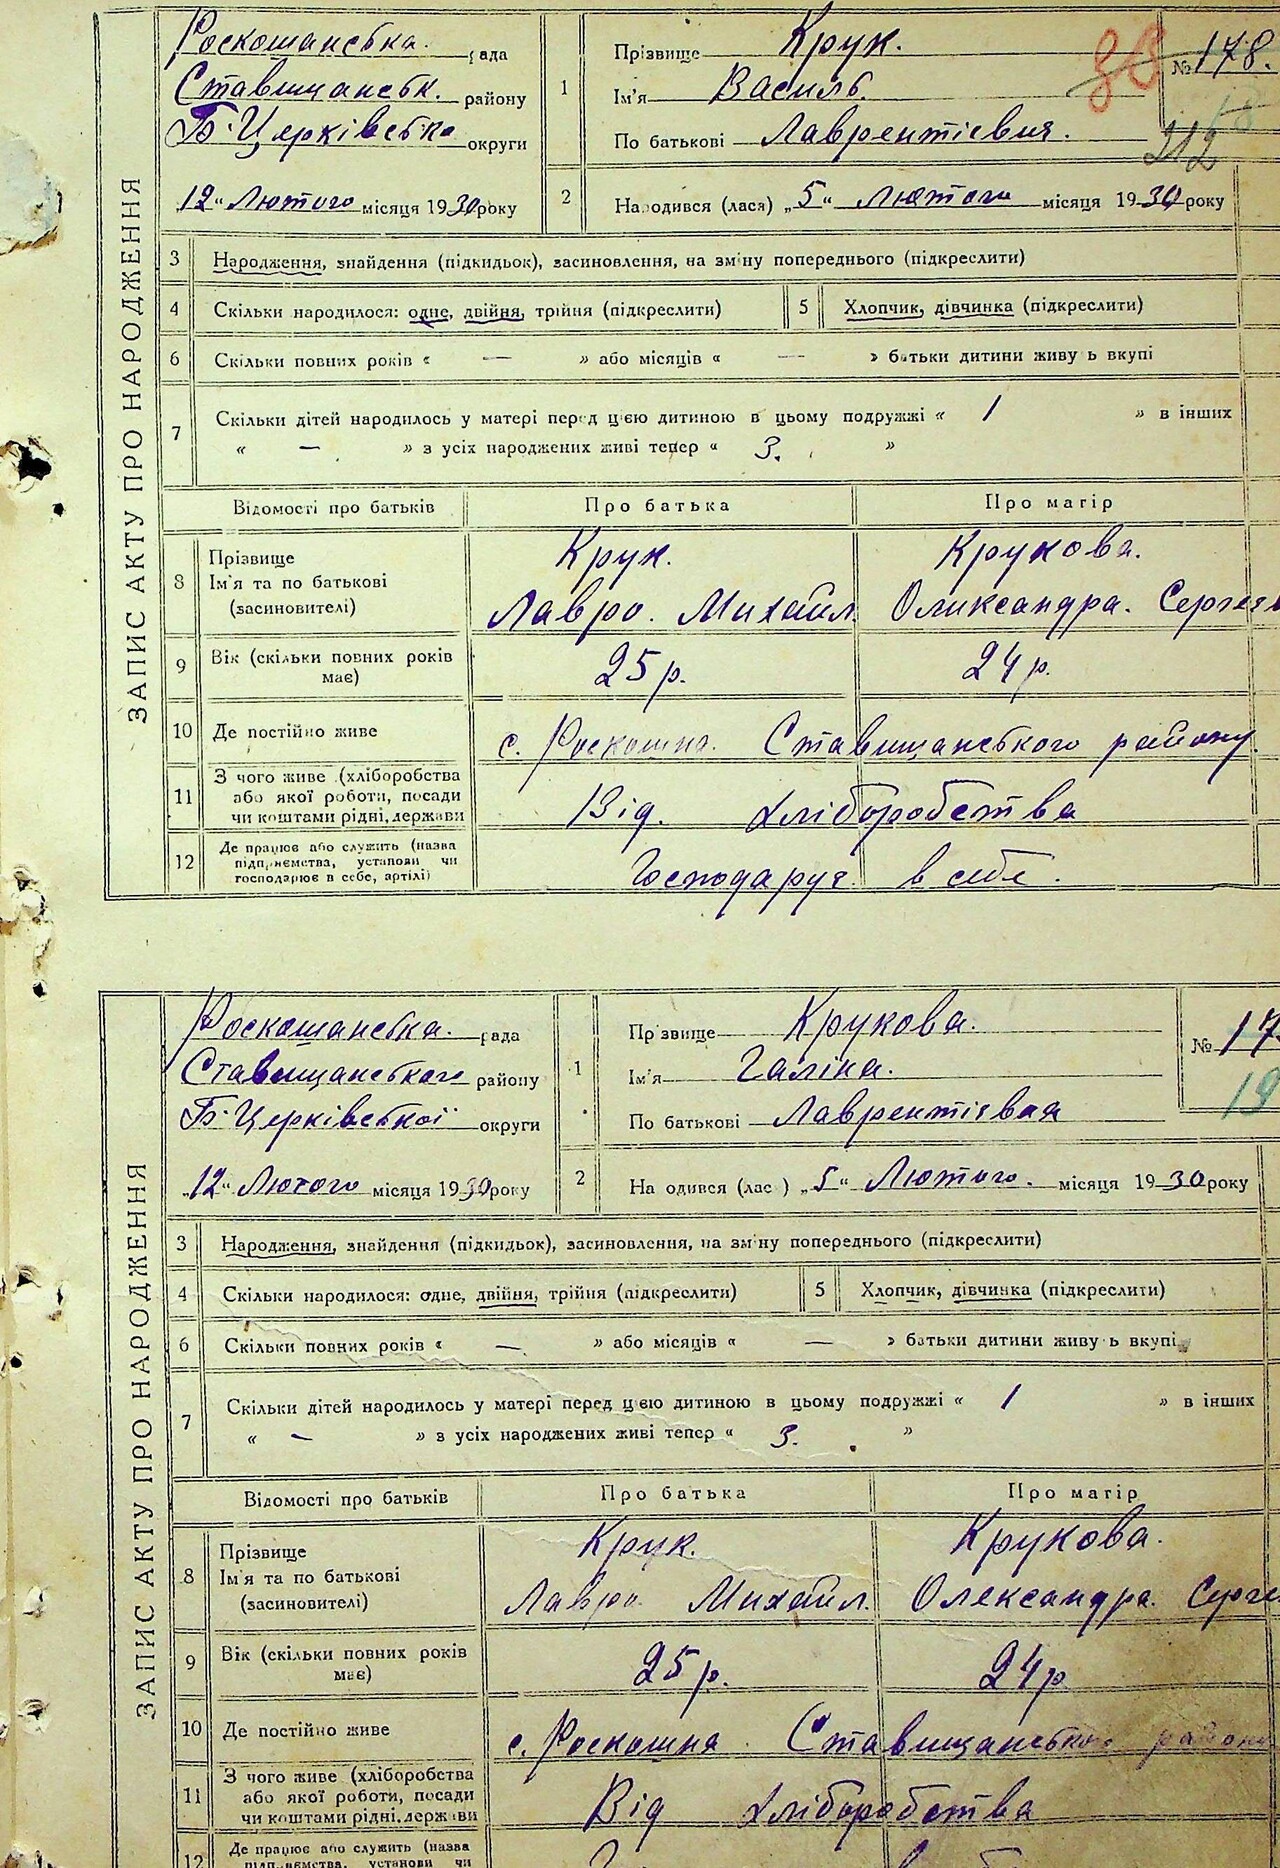 ЗАПИС АКТУ ПРО НАРОДЖЕННЯ
Роскошанська. рада
Ставищанськ. району
Б-Церківська округи
„12“ Лютого місяця 1930 року
1
Прізвище Крук.
Ім'я Василь.
По батькові Лаврентієвич.
№ 178.
212
2 Народився (лася) „5“ Лютого місяця 1930 року
3 Народження, знайдення (підкидьок), засиновлення, на зміну попереднього (підкреслити)
4 Скільки народилося: одне, двійня, трійня (підкреслити) 5 Хлопчик, дівчинка (підкреслити)
6 Скільки повних років « — » або місяців « — » батьки дитини живуть вкупі
7 Скільки дітей народилось у матері перед цією дитиною в цьому подружжі « 1 » в інших
« — » з усіх народжених живі тепер « 3. »
Відомості про батьків Про батька Про матір
8 Прізвище Крук. Крукова.
Ім'я та по батькові
(засиновителі) Лавро. Михайл. Олександра.
9 Вік (скільки повних років має) 25 р. 24 р.
10 Де постійно живе с. Роскошна. Ставищанського району
11 З чого живе (хліборобства
або якої роботи, посади Від. хліборобства
чи коштами рідні, держави
12 Де працює або служить (назва
підприємства, установи чи Господарує в себе.
господарює в себе, артілі)
ЗАПИС АКТУ ПРО НАРОДЖЕННЯ
Роскошанська. рада
Ставищанського району
Б-Церківської округи
„12“ Лютого місяця 1930 року
1
Прізвище Крукова.
Ім'я Галіна.
По батькові Лаврентієвна
№ 17
19
2 Народився (лас ) „5“ Лютого. місяця 1930 року
3 Народження, знайдення (підкидьок), засиновлення, на зміну попереднього (підкреслити)
4 Скільки народилося: одне, двійня, трійня (підкреслити) 5 Хлопчик, дівчинка (підкреслити)
6 Скільки повних років « — » або місяців « — » батьки дитини живуть вкупі
7 Скільки дітей народилось у матері перед цією дитиною в цьому подружжі « 1 » в інших
« — » з усіх народжених живі тепер « 3. »
Відомості про батьків Про батька Про матір
8 Прізвище Крук. Крукова.
Ім'я та по батькові
(засиновителі) Лавро Михайл. Олександра.
9 Вік (скільки повних років має) 25 р. 24 р
10 Де постійно живе с. Роскошна Ставищанського району
11 З чого живе (хліборобства
або якої роботи, посади Від хліборобства
чи коштами рідні, держави
12 Де працює або служить (назва
підприємства, установи чи